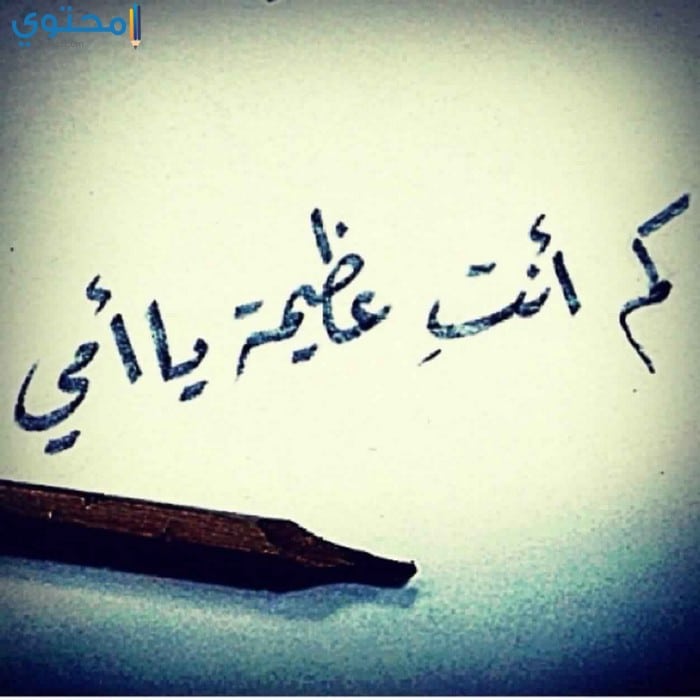 محتوي
كم أنتِ عظيمة يا أمي